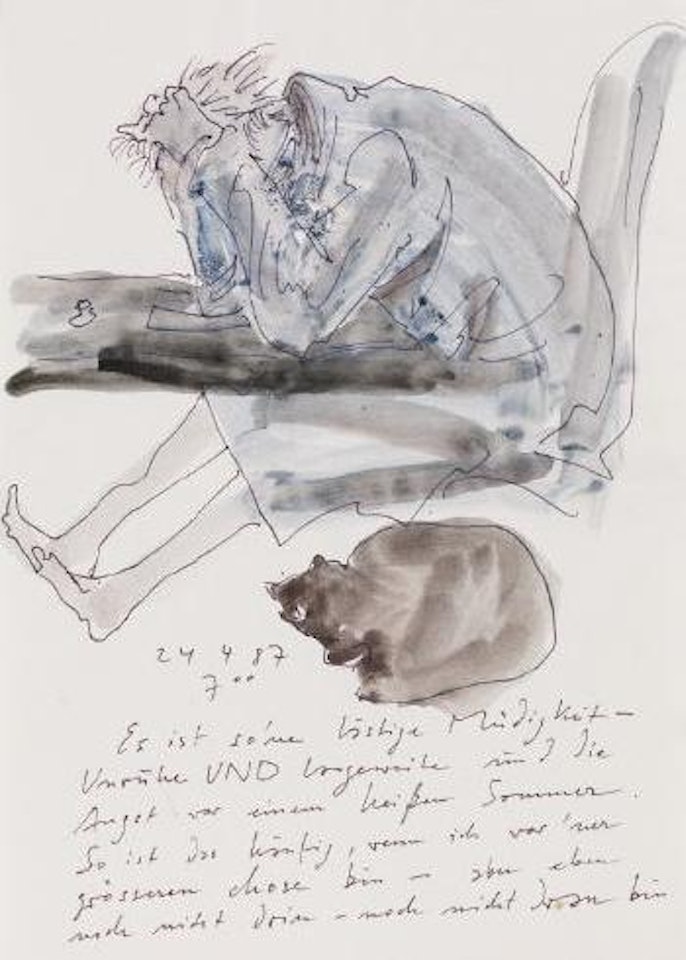 24 4 87
7 00
Es ist so'ne lästige Müdigkeit –
Unruhe UND Langeweile und die
Angst vor einem heißen Sommer.
So ist das häufig, wenn ich vor 'ner
grösseren chose bin – aber eben
noch nicht drin – noch nicht dran bin